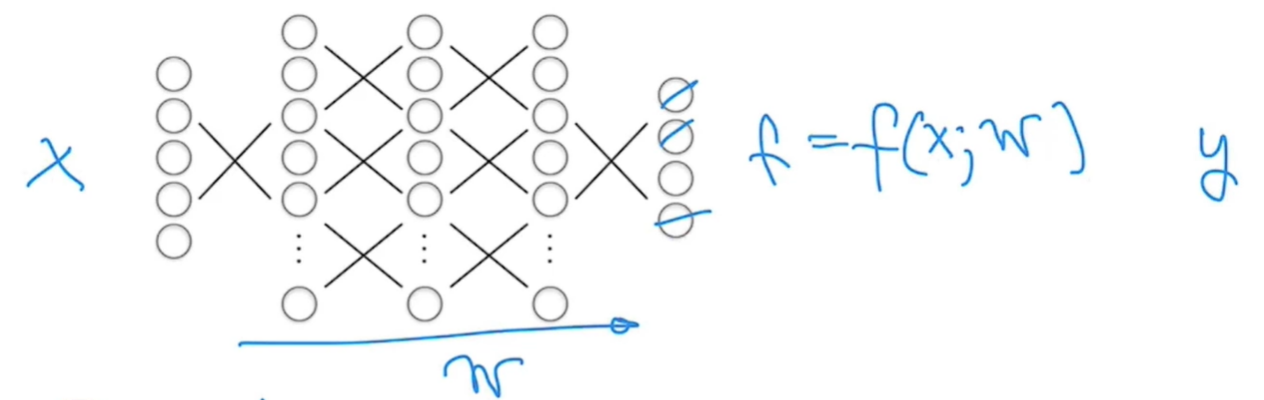 x f = f(x; w) y
w